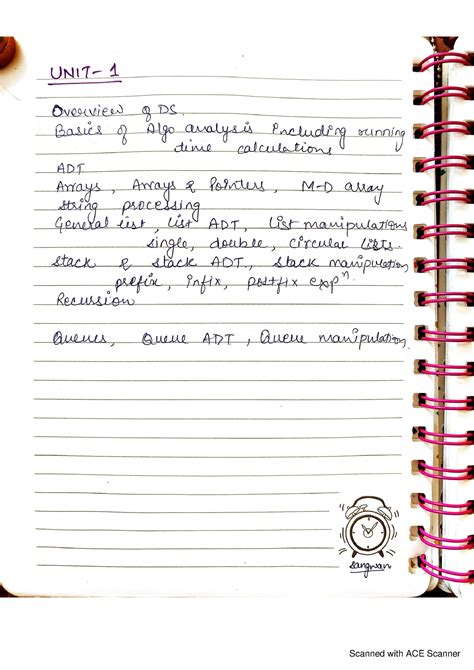 UNIT- 1
Overview of DS.
Basics of Algo analysis Including running
time calculations
ADT
Arrays, Arrays & Pointers, M-D array
String processing
General list, list ADT, list manipulations
single, double, circular lists.
Stack & stack ADT, stack manipulation
prefix, infix, postfix expⁿ.
Recursion
Queues, Queue ADT, Queue manipulation.
sangwan
Scanned with ACE Scanner